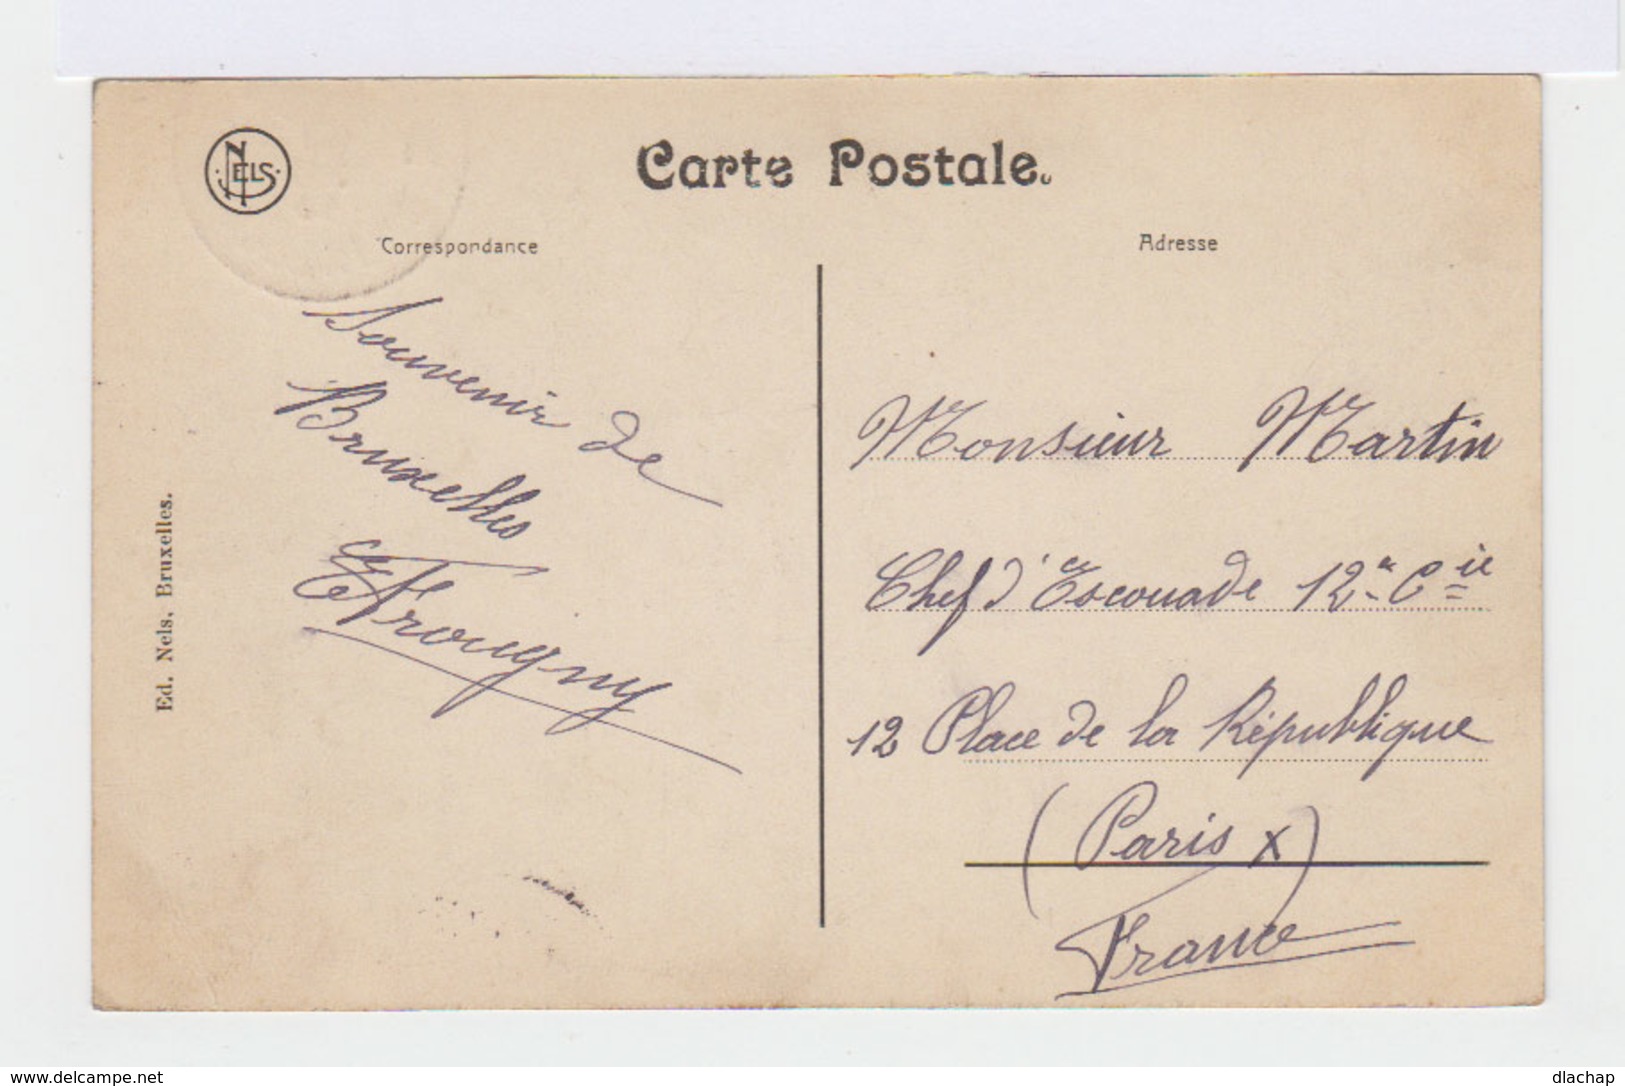 NELS
Carte Postale.
Correspondance
Adresse
Souvenir de
Bruxelles
Ed. Nels. Bruxelles.
Monsieur Martin
Chef d'Escouade 12e Cie
12 Place de la République
(Paris X)
France
www.delcampe.net
dlachap